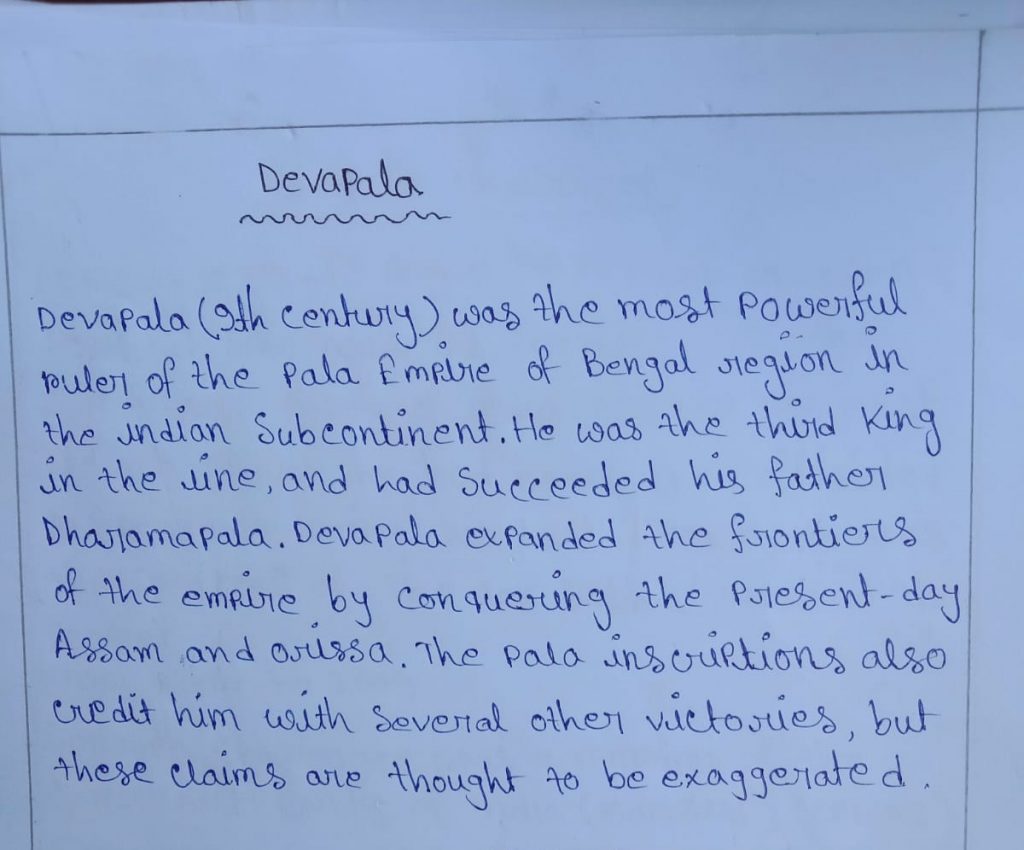 Devapala
Devapala (9th century) was the most powerful
ruler of the Pala Empire of Bengal region in
the indian Subcontinent. He was the third King
in the line, and had Succeeded his father
Dharamapala. Devapala expanded the frontiers
of the empire by conquering the present-day
Assam and orissa. The pala inscriptions also
credit him with several other victories, but
these claims are thought to be exaggerated.